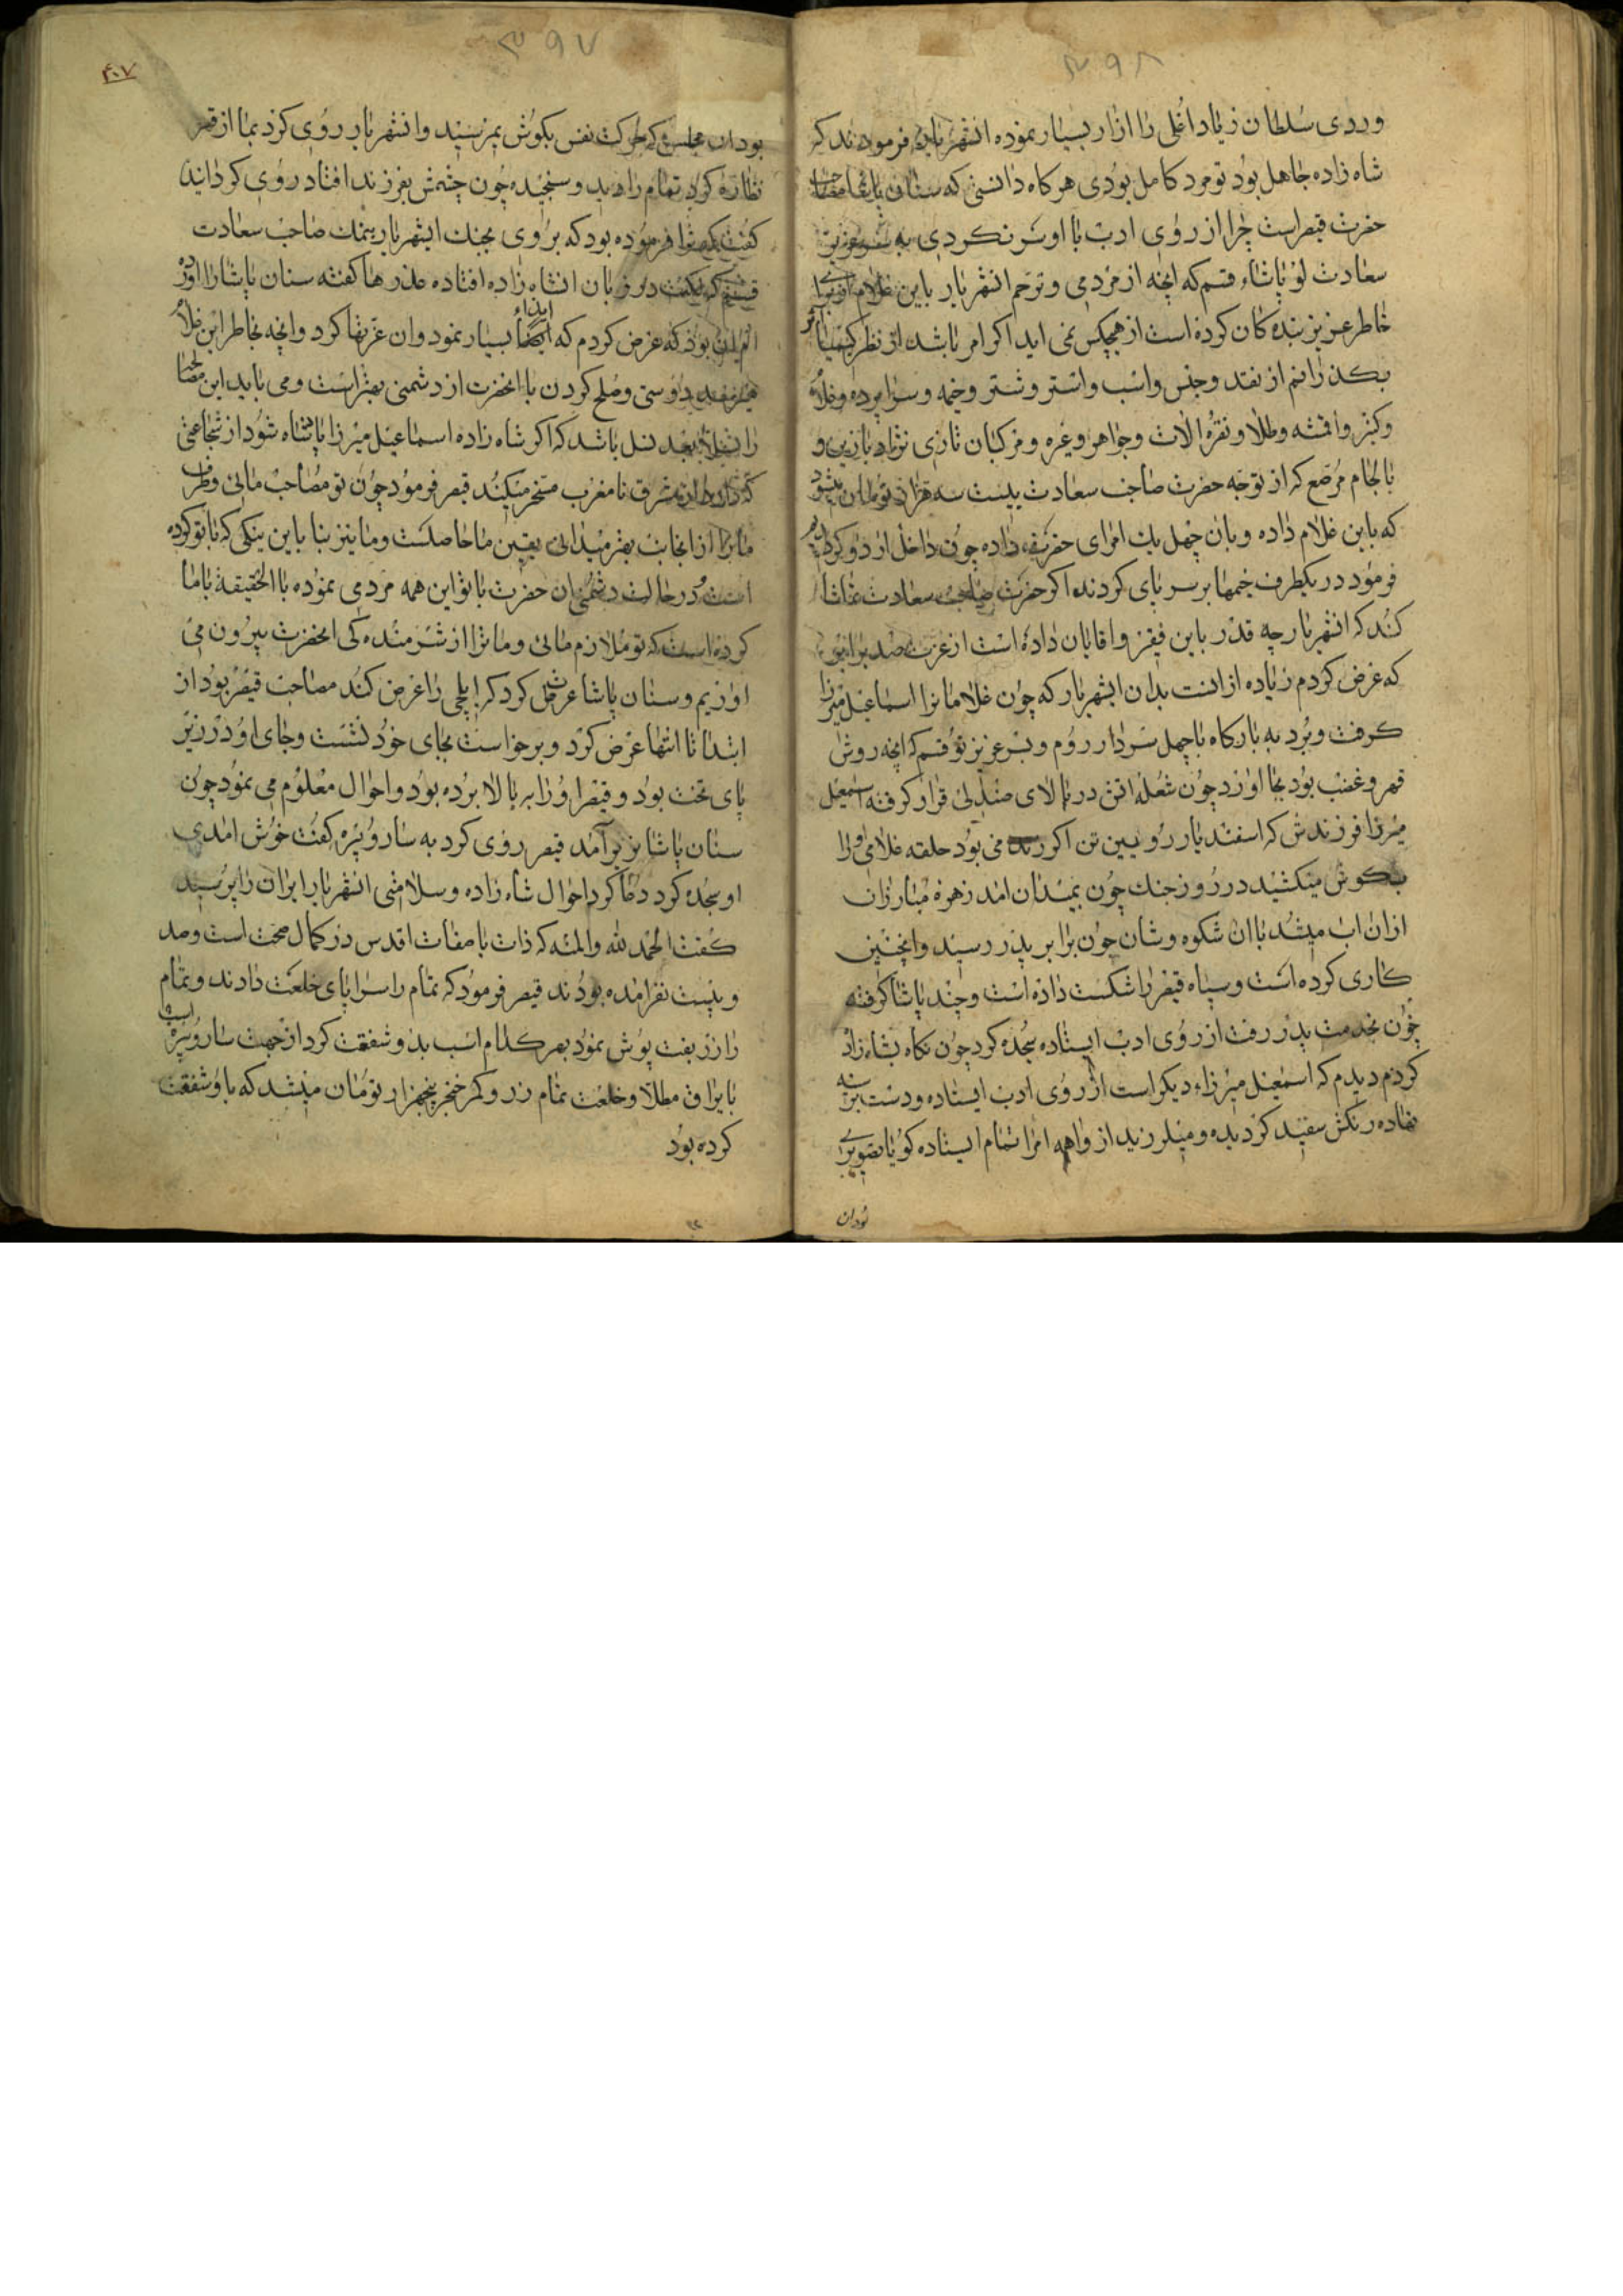 ۳۹۸
وردی سلطان زیاد اغلی را ازار بسیار نموده انشهریار فرمودند که
شاه زاده جاهل بود تو مرد کامل بودی هرکاه دانستی که سنان پاشا مصاحب
حضرت قیصر است چرا از روی ادب با اوسر نکردی به سر عزیز
سعادت لو پاشاء قسم که انچه از مردمی و ترحم انشهریار باین غلام
خاطر عزیز بنده کان کرده است از هیچکس نمی اید اکر امر باشد از نظر کیمیا اثر
بکذرانم از نقد و جنس واسب واشتر وشتر وخیمه وسراپرده وغلام
وکنیز واقمشه وطلا ونقره الات وجواهر وغیره ومرکبان تازی نژاد بازین و
بالجام مرصع که از توجه حضرت صاحب سعادت بیست سه هزار تومان میشود
که باین غلام داده وبان چهل یك امرای حضرت داده چون داخل اردو کردیم
فرمود در یکطرف خیمها بر سر پای کردند اکر حضرت صاحب سعادت تماشا
کند که انشهریار چه قدر باین فقیر واقایان داده است از عزت صد برابر
که عرض کردم زیاده از انست بدان ایشهریار که چون غلامانرا اسماعیل میرزا
کرفت وبرد به بارکاه باچهل سردار روم وبسر عزیز تو قسم که انچه روش
قهر وغضب بود بجا اورد چون شعله اتش در بالای صندلی قرار کرفته اسمعیل
میرزا فرزندش که اسفندیار رویین تن اکر زنده می بود حلقه غلامی اورا
بکوش میکشید در روز جنك چون بمیدان امد زهره مبارزان
ازان اب میشد باان شکوه وشان چون برابر پدر رسید وانچنین
کاری کرده است وسپاه قیصر را شکست داده است وچند پاشا کرفته
چون بخدمت پدر رفت از روی ادب ایستاده سجده کرد چون نکاه بشاه زاده
کردم دیدم که اسمعیل میرزاء دیکر است از روی ادب ایستاده ودست بر سینه
نهاده رنکش سفید کردیده ومیلرزید از واهمه امرا تمام ایستاده کویا تصویر
بودان
۳۹۷
۴۰۷
بود ان مجلس که حرکت نفس بکوش نمیرسید وانشهریار روی کرد بما از قهر
نظاره کرد تمام را دید وسنجیده چون چشمش بفرزند افتاد روی کردانید
کفت فرموده بود که بروی بجنك ایشهریار بنمك صاحب سعادت
قسم که لکنت در زبان انشاه زاده افتاده عذرها کفته سنان پاشا را اورد
بود که عرض کردم که ایذاء بسیار نمود وان عزتها کرد وانچه بخاطر این غلام
میرسد دوستی وصلح کردن باانحضرت از دشمنی بهتر است ومی باید این مصالحه
را بعد نسل باشد که اکر شاه زاده اسماعیل میرزا پادشاه شود از شجاعتی
که دارد از مشرق تا مغرب مسخر میکند قیصر فرمود چون تو مصاحب مائی وطرف
مارا از انجانب بهتر میدانی یقین ما حاصلست وما نیز بنا باین نیکی که باتو کرده
است در حالت دشمنی ان حضرت باتو این همه مردمی نموده باالحقیقة باما
کرده است که تو ملازم مائی وماترا از شرمنده کی انحضرت بیرون می
اوریم وسنان پاشا عرض کرد که ایلچی را عرض کند مصاحب قیصر بود از
ابتدا تا انتها عرض کرد وبرخواست بجای خود نشست وجای او در زیر
پای تخت بود وقیصر اورا به بالا برده بود واحوال معلوم می نمود چون
سنان پاشا بزیر آمد قیصر روی کرد به سارو پیره کفت خوش امدی
او سجده کرد دعا کرد احوال شاه زاده وسلامتی انشهریار ایران را پرسید
کفت الحمد لله والمنه که ذات باصفات اقدس در کمال صحت است وصد
وبیست نفر امده بودند قیصر فرمود که تمام را سراپای خلعت دادند وتمام
را زربفت پوش نمود بهر کدام اسب بد وشفقت کرد از جهت سارو پیره اسب
با یراق مطلا وخلعت تمام زر وکمر خنجر پنجهزار تومان میشد که باو شفقت
کرده بود